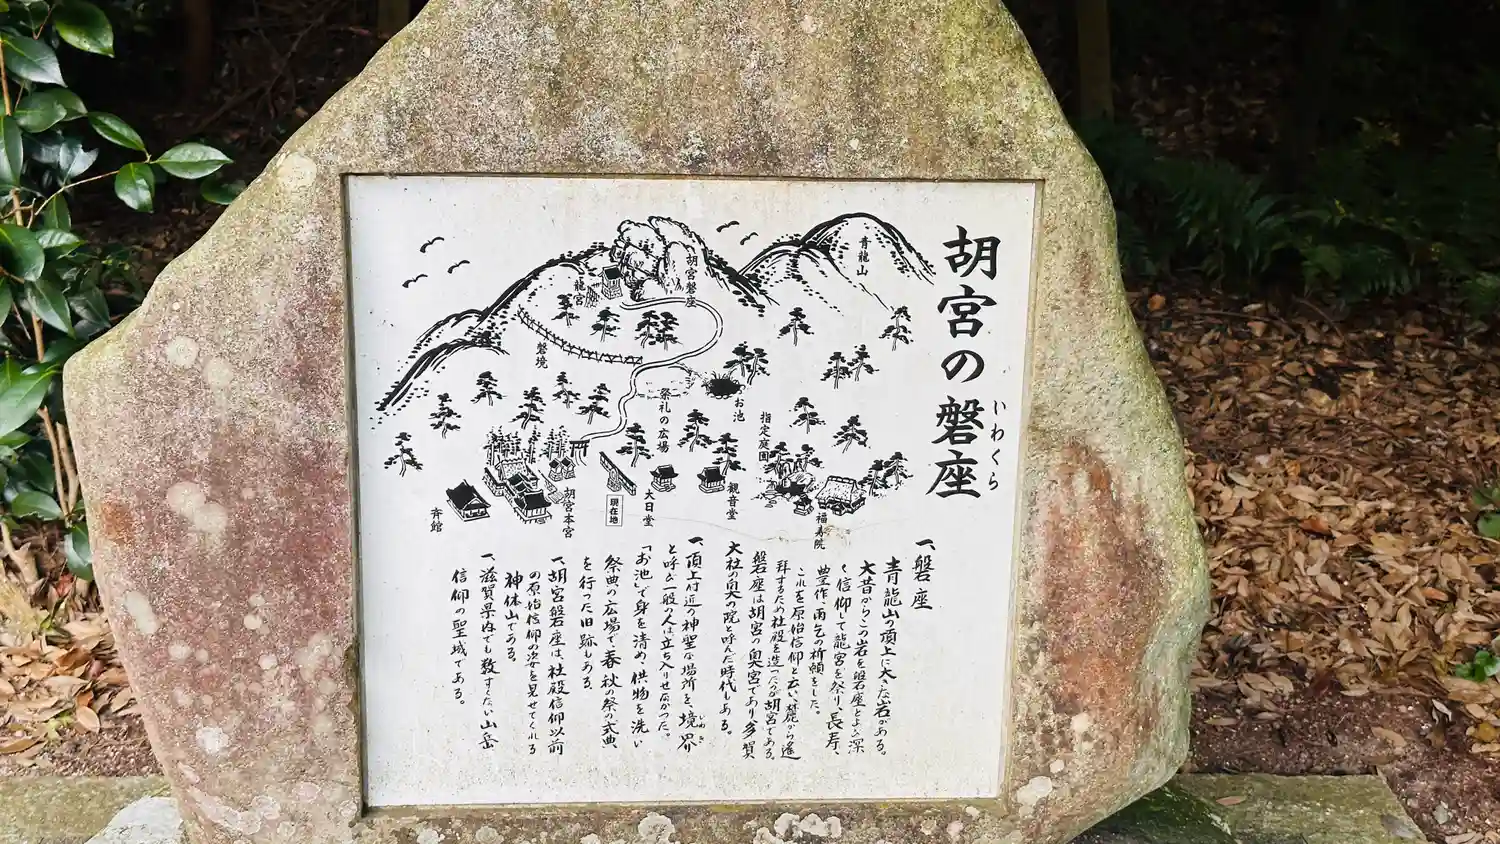 胡宮の磐座
いわくら
青龍山
胡宮磐座
龍宮
磐境
お池
祭礼の広場
指定庭園
観音堂
大日堂
現在地
胡宮本宮
斉館
福寿院
一、磐座
青龍山の頂上に大きな岩がある。
大昔からこの岩を磐座とよび深
く信仰して龍宮を祭り、長寿、
豊作、雨乞の祈願をした。
これを原始信仰と云い、麓から遙
拝するため社殿を造ったのが胡宮である。
磐座は胡宮の奥宮であり多賀
大社の奥の院と呼んだ時代もある。
一、頂上付近の神聖な場所を、境界
と呼び一般の人は立ち入りせなかった。
「お池」で身を清め、供物を洗い
祭典の広場で春秋の祭の式典、
を行った旧跡もある。
一、胡宮磐座は、社殿信仰以前
の原始信仰の姿を見せてくれる
神体山である。
一、滋賀県内でも数すくない山岳
信仰の聖域である。